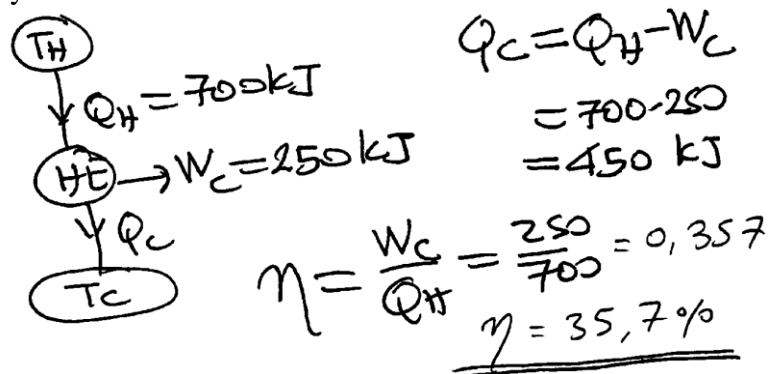 T_H
Q_H = 700 kJ
HE → W_C = 250 kJ
Q_C
T_C
Q_C = Q_H - W_C
= 700-250
= 450 kJ
η = W_C/Q_H = 250/700 = 0,357
η = 35,7%